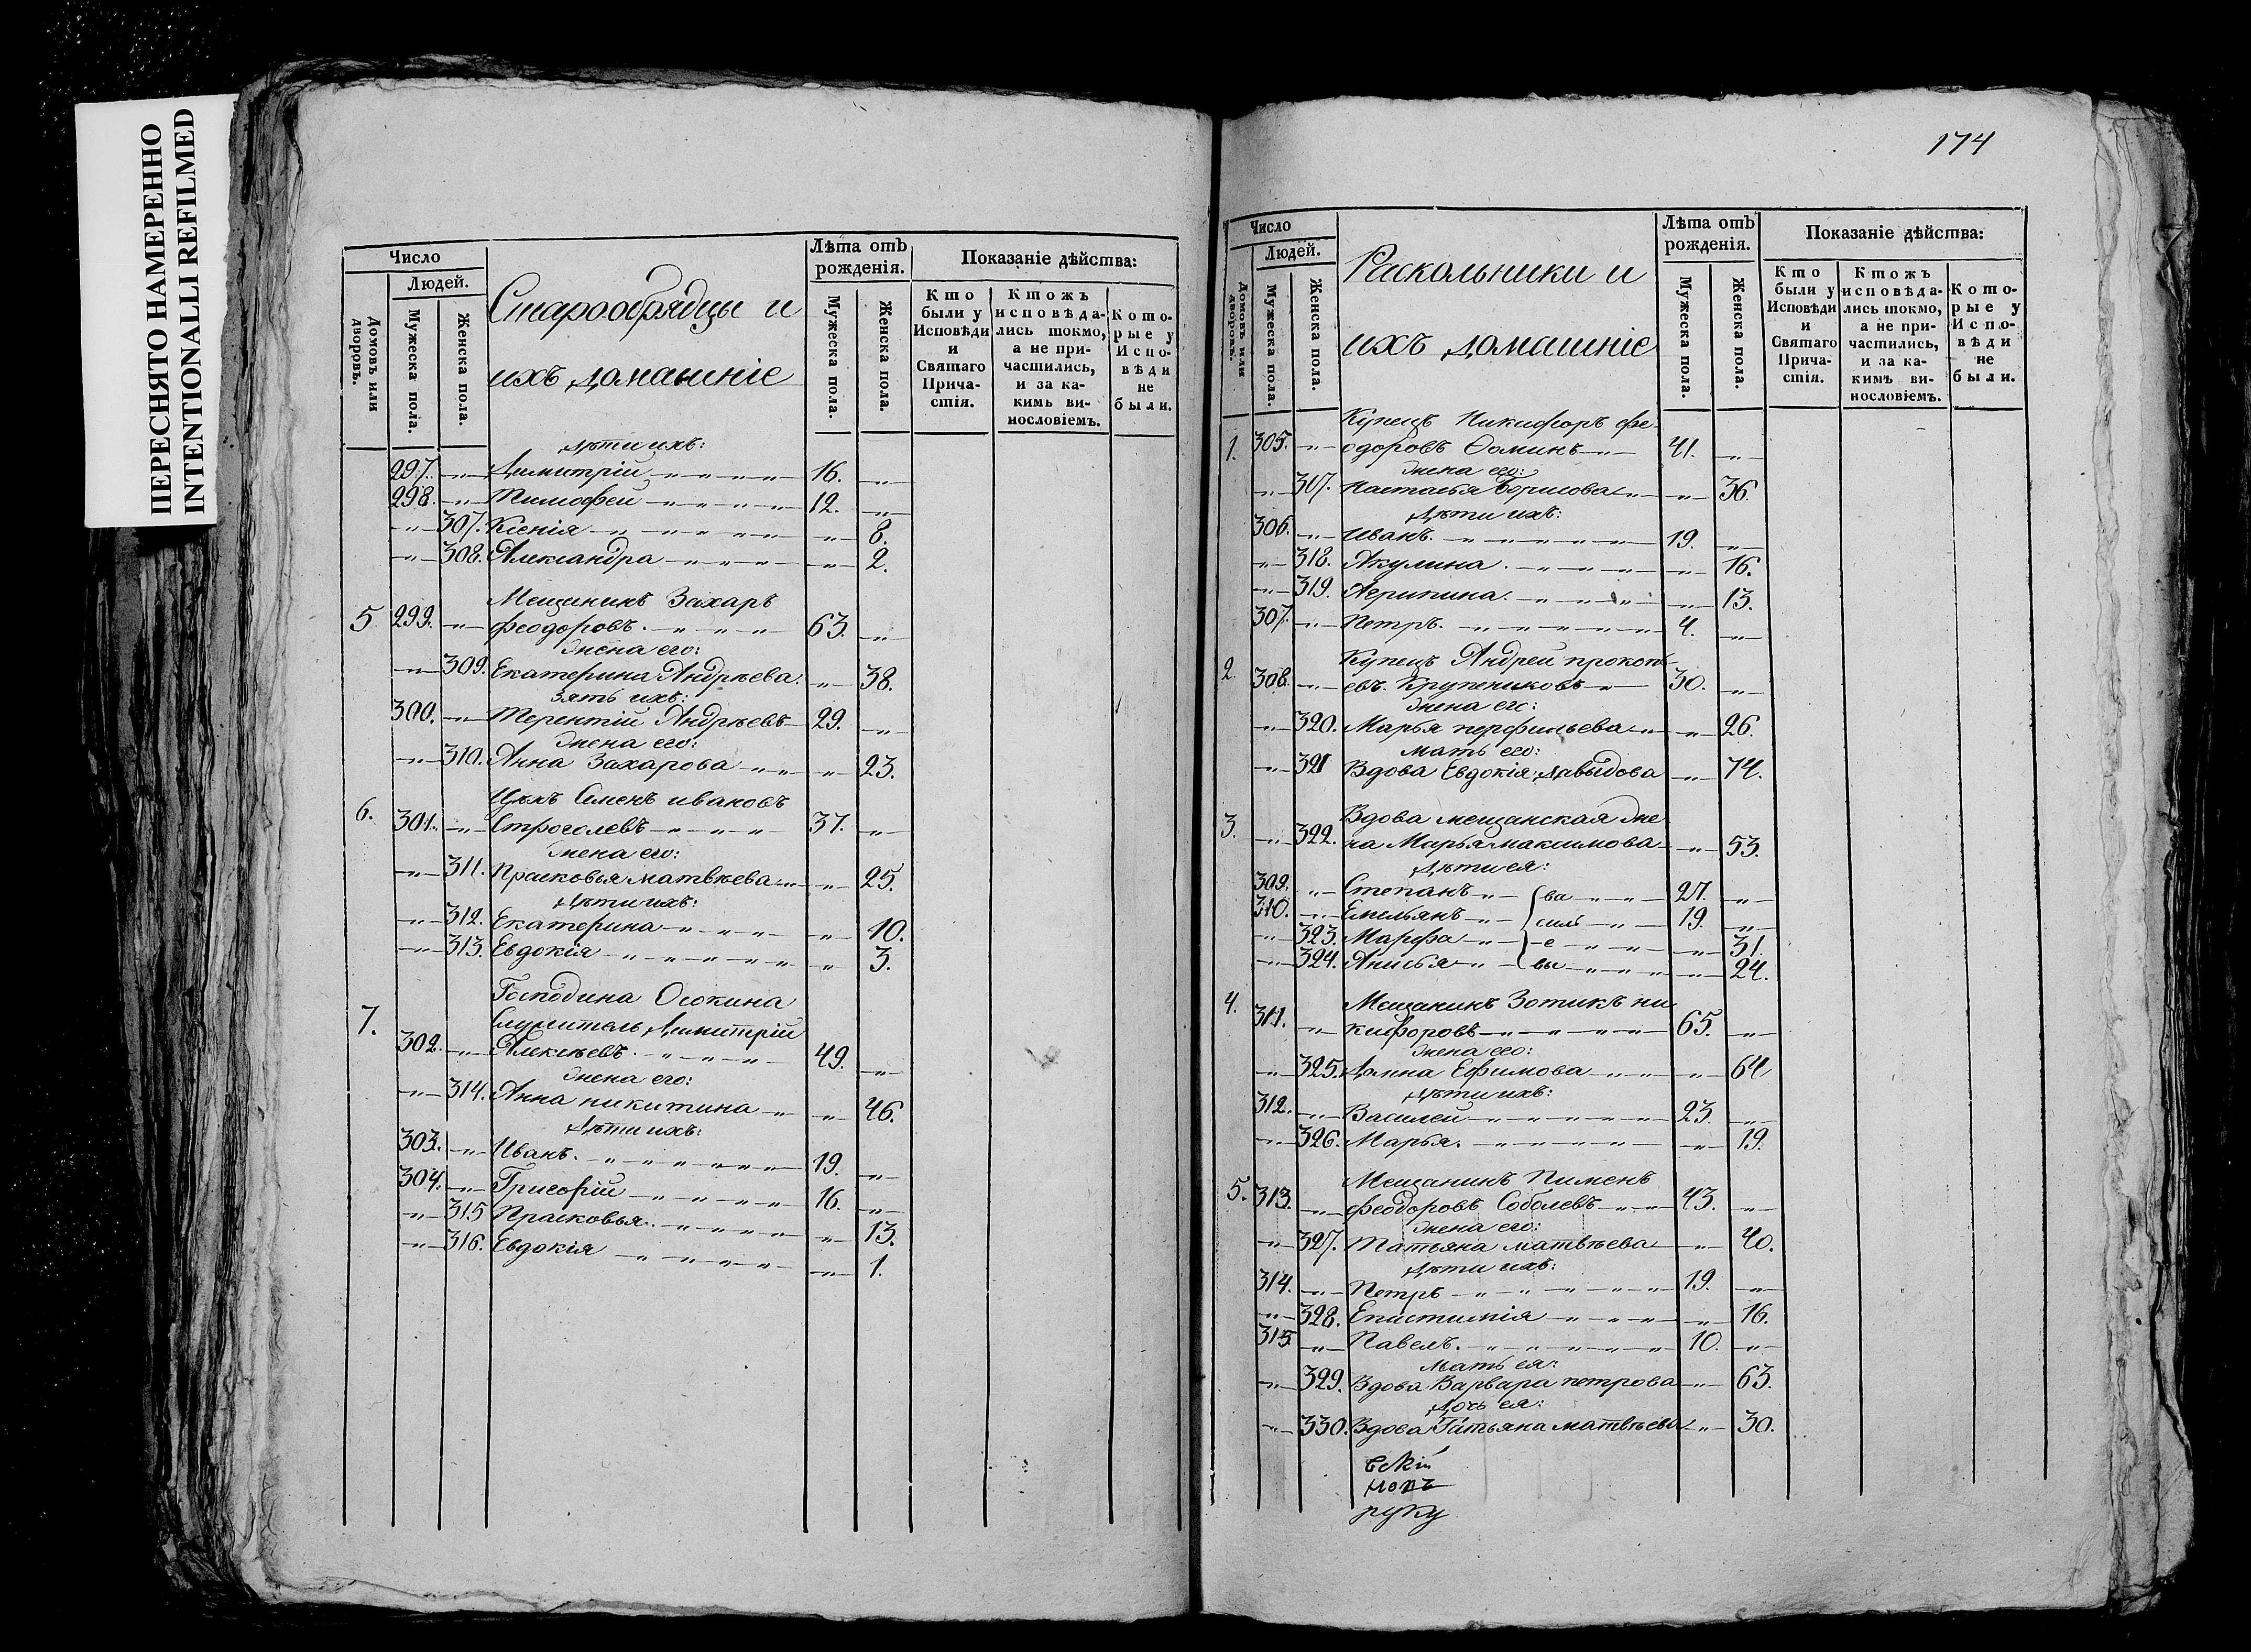 ПЕРЕСНЯТО НАМЕРЕННО
INTENTIONALLI REFILMED
Число
Людей.
Домовъ или дворовъ.
Мужеска пола.
Женска пола.
Старообрядцы и
ихъ домашніе
Лѣта отъ рожденія.
Мужеска пола.
Женска пола.
Показаніе дѣйства:
Кто были у Исповѣди и Святаго Прича-стія.
Ктожъ исповѣда-лись токмо, а не при-частились, и за ка-кимъ ви-нословіемъ.
Кото-рые у Испо-вѣди не были.
дѣти ихъ:
297. -"- Димитрій 16. -"-
298. -"- Тимофей 12. -"-
-"- 307. Ксенія -"- 8.
-"- 308. Александра -"- 2.
Мещенинъ Захаръ
5 299. -"- феодоровъ. 63. -"-
жена его:
-"- 309. Екатерина Андрѣева. -"- 38.
зять ихъ:
300. -"- Терентій Андрѣевъ 29. -"-
жена его:
-"- 310. Анна Захарова -"- 23.
Цехъ Семенъ ивановъ
6. 301. -"- Строголевъ 37. -"-
жена его:
-"- 311. Прасковья матвѣева -"- 25.
дѣти ихъ:
-"- 312. Екатерина -"- 10.
-"- 313. Евдокія -"- 3.
Господина Осокина
7. служитель Димитрій
302. -"- Алексѣевъ. 49. -"-
жена его:
-"- 314. Анна никитина -"- 46.
дѣти ихъ:
303. -"- Иванъ. 19. -"-
304. -"- Григорій 16. -"-
-"- 315 Прасковья. -"- 13.
-"- 316. Евдокія -"- 1.
174
Число
Людей.
Домовъ или дворовъ.
Мужеска пола.
Женска пола.
Раскольники и
ихъ домашніе
Лѣта отъ рожденія.
Мужеска пола.
Женска пола.
Показаніе дѣйства:
Кто были у Исповѣди и Святаго Прича-стія.
Ктожъ исповѣда-лись токмо, а не при-частились, и за ка-кимъ ви-нословіемъ.
Кото-рые у Испо-вѣди не были.
Купецъ Никифоръ фе-
1. 305. -"- одоровъ Ѳоминъ 41. -"-
жена его:
-"- 317. Настасья Борисова -"- 36.
дѣти ихъ:
306. -"- Иванъ. 19. -"-
-"- 318. Акулина. -"- 16.
-"- 319. Агрипина. -"- 13.
307. -"- Петръ. 4. -"-
Купецъ Андрей прокопь-
2. 308. -"- евъ. Крупениковъ 30. -"-
жена его:
-"- 320. Марья перфильева -"- 26.
мать его:
-"- 321 Вдова Евдокія Давыдова -"- 74.
Вдова мещанская же
3. -"- 322. на Марья максимова -"- 53.
дѣти ея:
309. -"- Степанъ ва 27. -"-
310. -"- Емельянъ силь 19. -"-
-"- 323. Марфа е -"- 31.
-"- 324. Анисья вы -"- 24.
Мещанинъ Зотикъ ни
4. 311. -"- кифоровъ 65. -"-
жена его:
-"- 325. Домна Ефимова -"- 64
дѣти ихъ:
312. -"- Василей 23. -"-
-"- 326. Марья. -"- 19.
Мещанинъ Пименъ
5. 313. -"- феодоровъ Соболевъ 43. -"-
жена его:
-"- 327. Татьяна матвѣева -"- 40.
дѣти ихъ:
314. -"- Петръ 19. -"-
-"- 328. Епистимія -"- 16.
315 -"- Павелъ. 10. -"-
мать ея:
-"- 329. Вдова Варвара петрова -"- 63.
дочь ея:
-"- 330. Вдова Татьяна матвѣева -"- 30.
вскій
руку